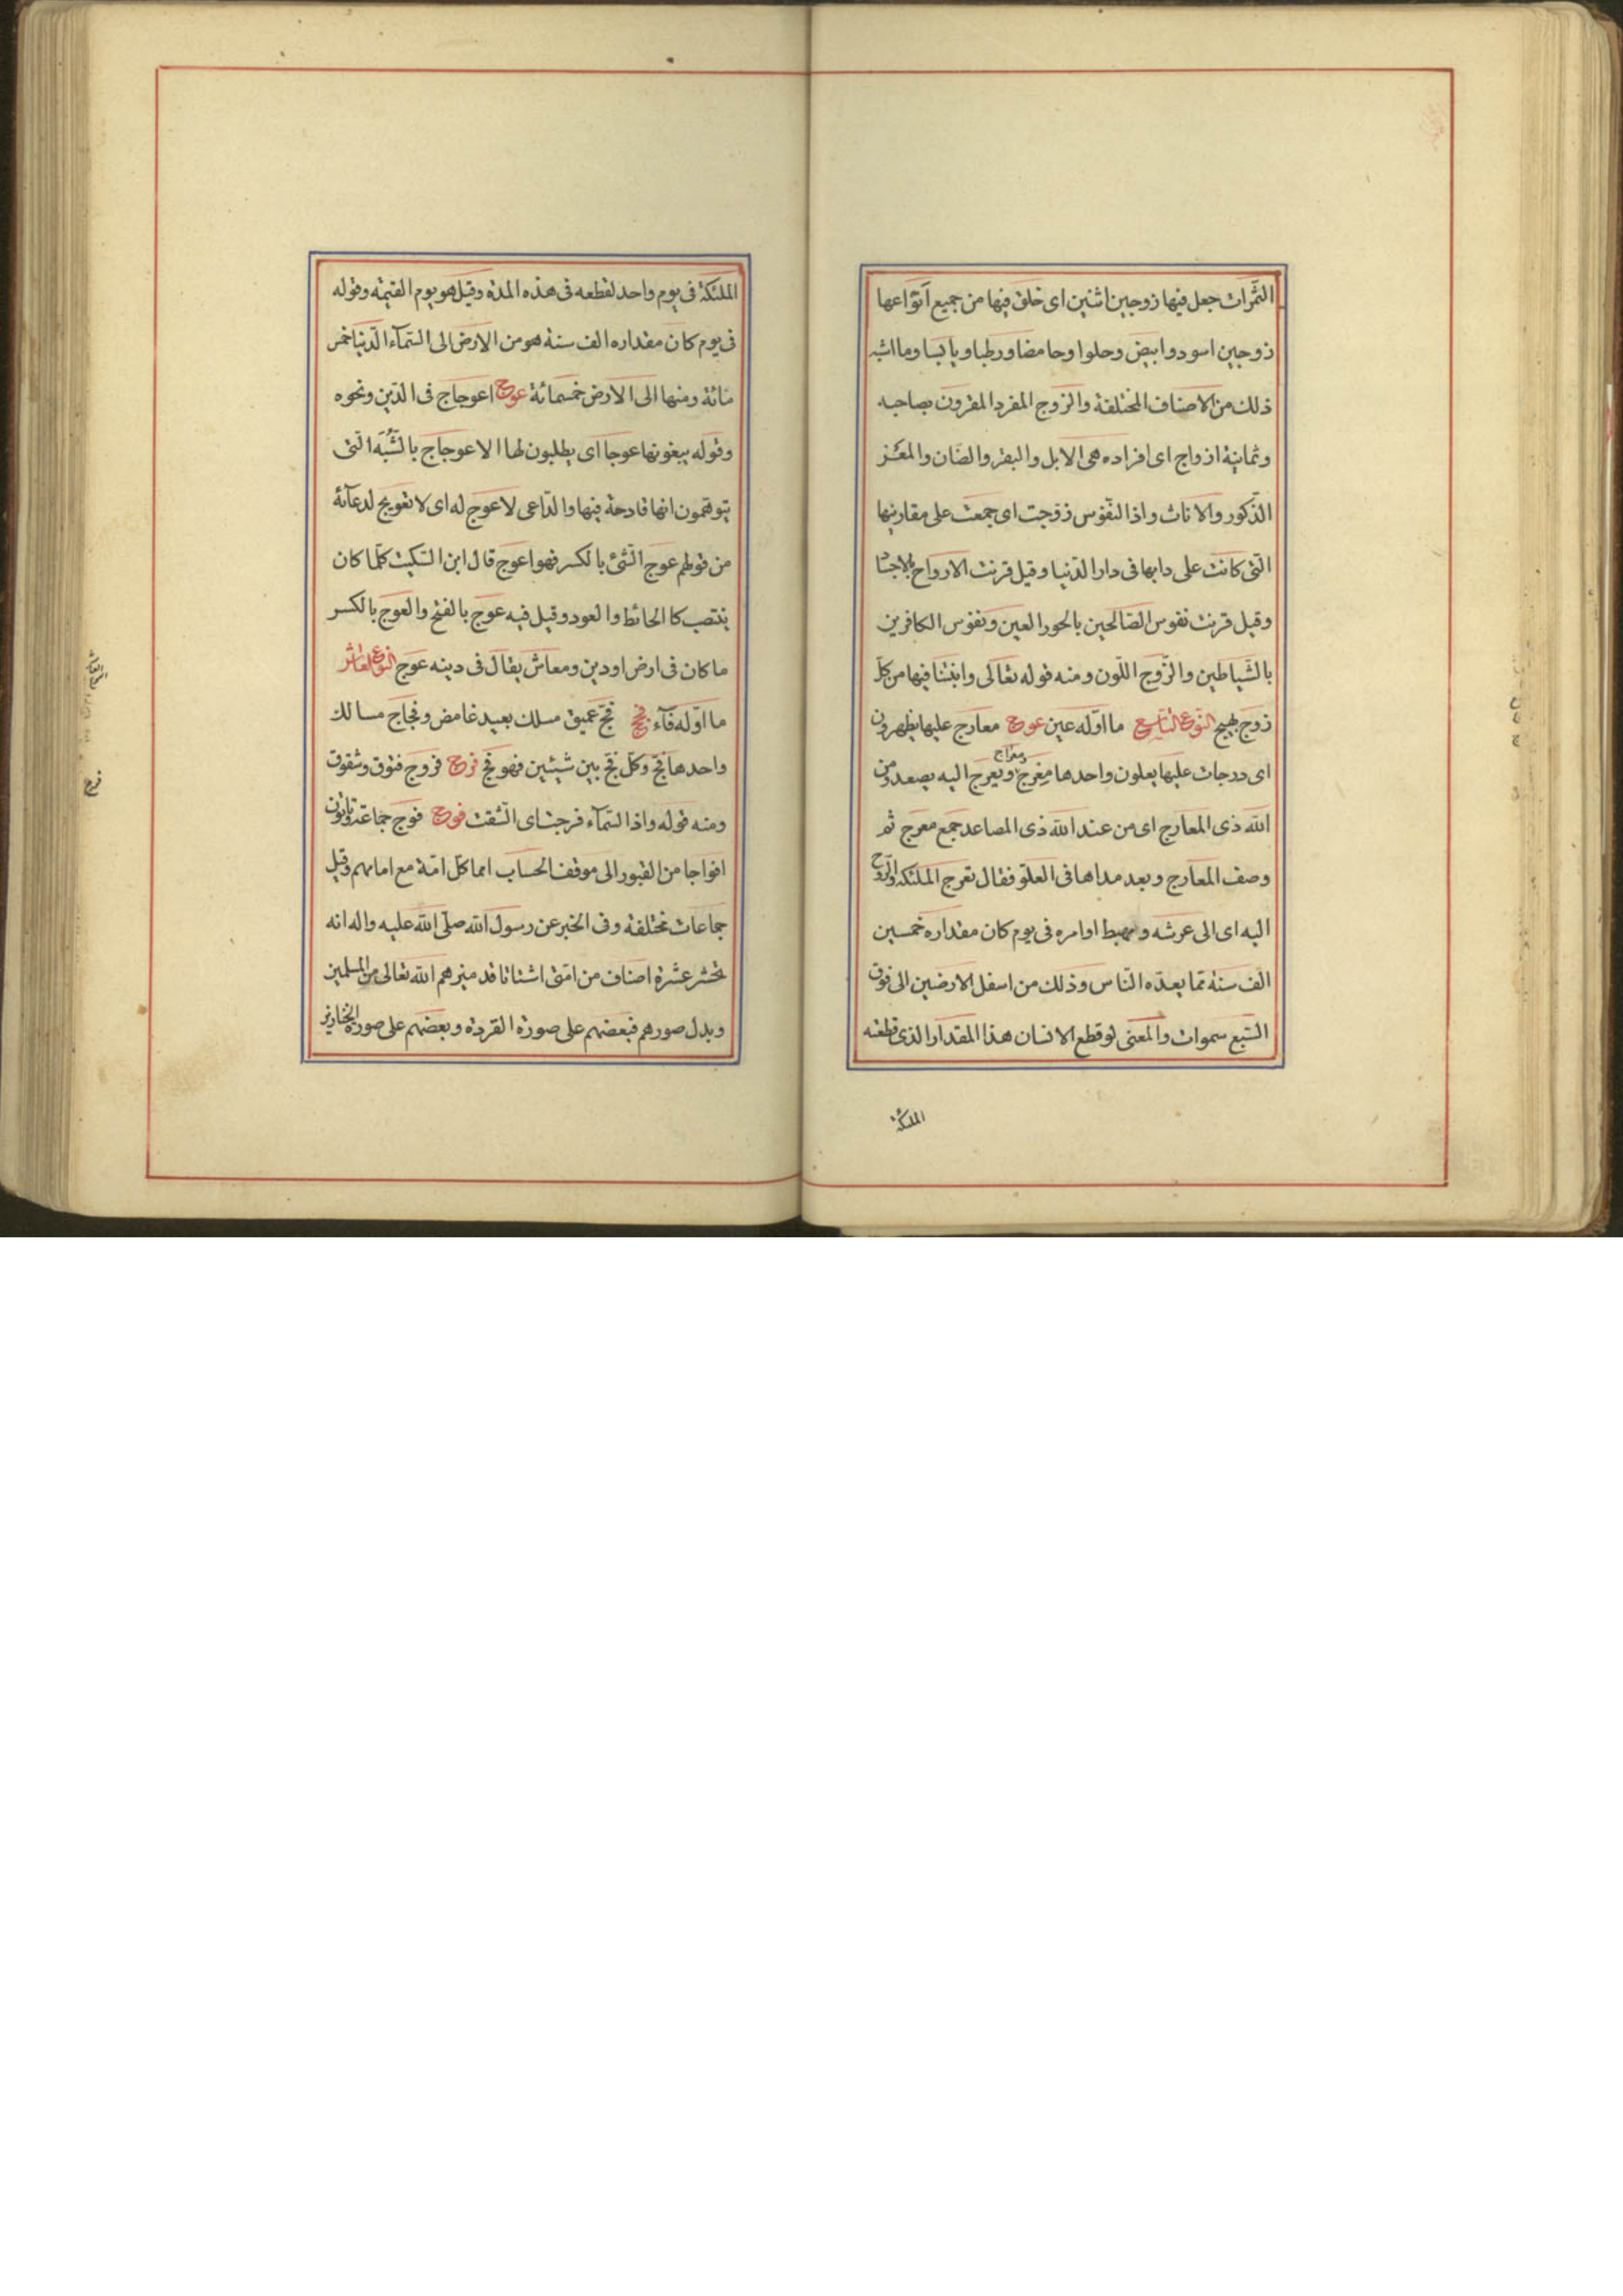 الثمرات جعل فيها زوجين اثنين اى خلق فيها من جميع انواعها
زوجين اسود وابيض وحلوا وحامضا ورطبا ويابسا وما اشبه
ذلك من الاصناف المختلفة والزوج المفرد المقرون بصاحبه
وثمانية ازواج اى افراده هى الابل والبقر والضان والمعز
الذكور والاناث واذا النفوس زوجت اى جمعت على مقارنيها
التى كانت على دابها فى دار الدنيا وقيل قرنت الارواح بالاجساد
وقيل قرنت نفوس الصالحين بالحور العين ونفوس الكافرين
بالشياطين والزوج اللون ومنه قوله تعالى وانبتنا فيها من كل
زوج بهيج النوع التاسع ما اوله عين عرج معارج عليها يظهرون
اى درجات عليها يعلون واحدها معرج ومعراج ويعرج اليه يصعد ومن
الله ذى المعارج اى من عند الله ذى المصاعد جمع معرج ثم
وصف المعارج وبعد مداها فى العلو فقال تعرج الملئكة والروح
اليه اى الى عرشه ومهبط اوامره فى يوم كان مقداره خمسين
الف سنة مما يعده الناس وذلك من اسفل الارضين الى فوق
السبع سموات والمعنى لو قطع الانسان هذا المقدار الذى قطعته
الملئكة
الملئكة فى يوم واحد لقطعه فى هذه المدة وقيل هو يوم القيمة وقوله
فى يوم كان مقداره الف سنة هو من الارض الى السمآء الدنيا خمس
مائة ومنها الى الارض خمسمائة عوج اعوجاج فى الدين ونحوه
وقوله يبغونها عوجا اى يطلبون لها الاعوجاج بالشُّبَه التى
يتوهمون انها قادحة فيها والداعى لا عوج له اى لا تعويج لدعآئه
من قولهم عوج الشئ بالكسر فهو اعوج قال ابن السكيت كلما كان
ينتصب كالحائط والعود وقيل فيه عوج بالفتح والعوج بالكسر
ما كان فى ارض او دين ومعاش يقال فى دينه عوج النوع العاشر
ما اوله فآء فجج فج عميق مسلك بعيد غامض وفجاج مسالك
واحدها فج وكل فج بين شيئين فهو فج فرج فروج فتوق وشقوق
ومنه قوله واذا السمآء فرجت اى انشقت فوج فوج جماعة وتاتون
افواجا من القبور الى موقف الحساب امما كل امة مع امامهم وقيل
جماعات مختلفة وفى الخبر عن رسول الله صلى الله عليه واله انه
تحشر عشرة اصناف من امتى اشتاتا قد ميزهم الله تعالى من المسلمين
وبدل صورهم فبعضهم على صورة القردة وبعضهم على صورة الخنازير
فرج